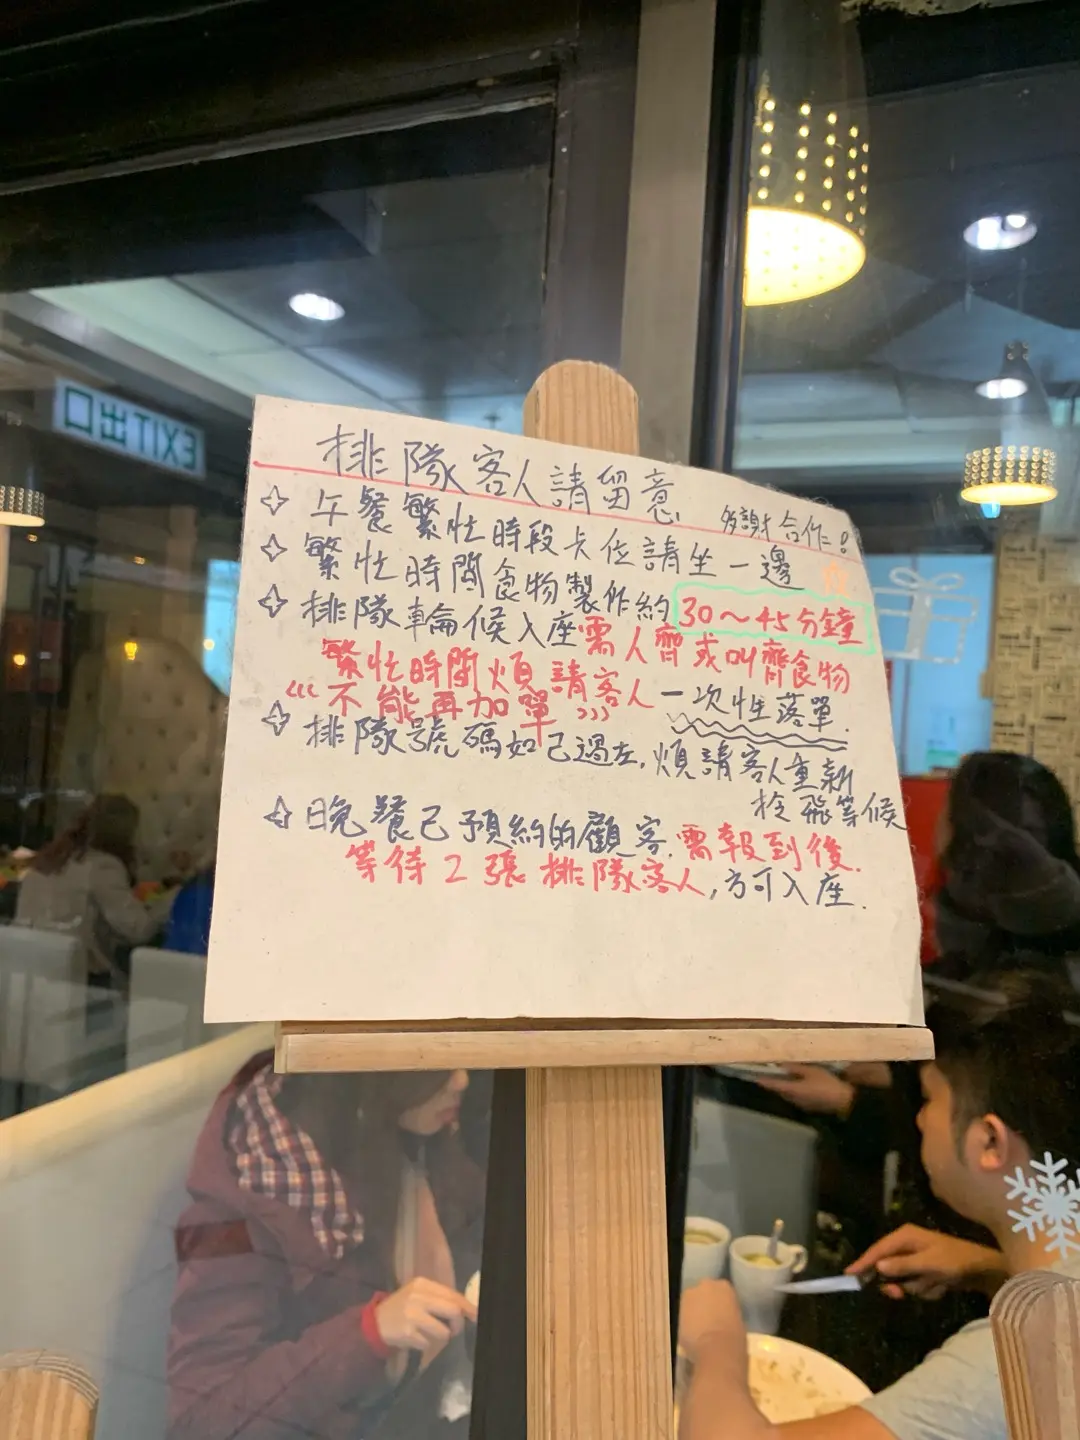 EXIT出口
排隊客人請留意 多謝合作!
午餐繁忙時段卡位請坐一邊
繁忙時間食物製作約30～45分鐘
排隊輪候入座需人齊或叫齊食物
繁忙時間煩請客人一次性落單.
不能再加單
排隊號碼如已過左,煩請客人重新
拎飛等候
晚餐已預約的顧客.需報到後.
等待2張排隊客人,方可入座.